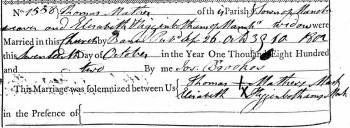 No 1558 Thomas Mather of this Parish & Town of Manchr
weaver and Elizabeth Higginbotham of Manchr widow were
Married in this Church by Banns Pubd Sepr 26 Octr 3d & 10 1802
this seventeenth Day of October in the Year One Thousand Eight Hundred
and two By me Jos. Brookes
This Marriage was solemnized between Us Thomas X Mathers Mark
Elizabeth X Higginbothams Mark
In the Presence of